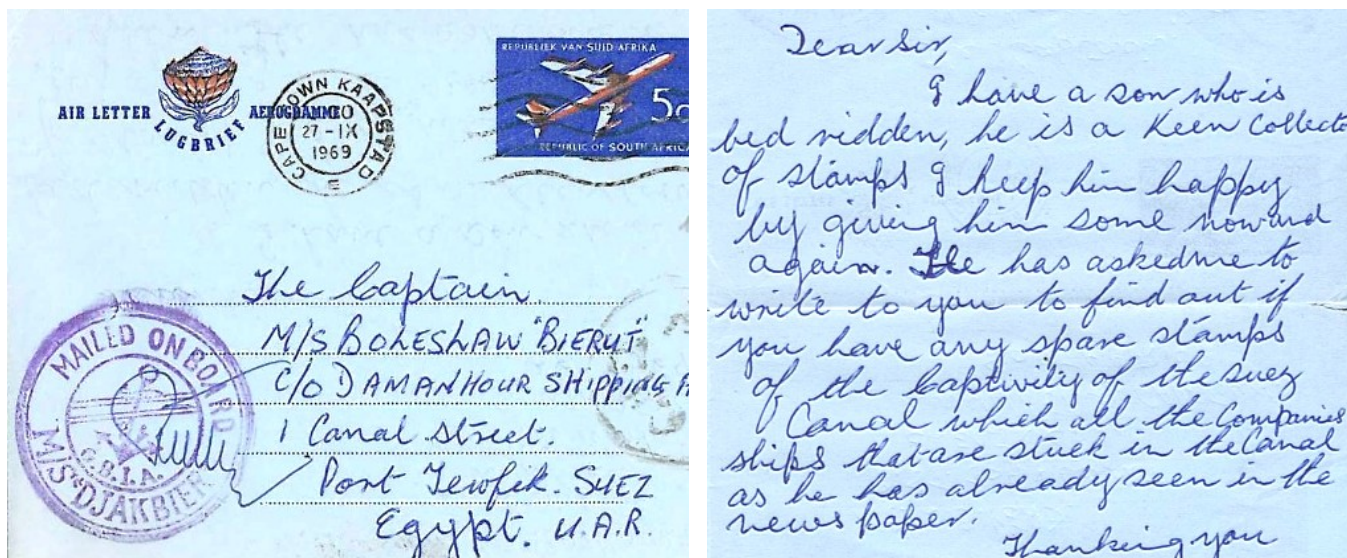 AIR LETTER
LUGBRIEF
AEROGRAMME
CAPE TOWN KAAPSTAD
27 - IX
1969
REPUBLIEK VAN SUID-AFRIKA
5c
REPUBLIC OF SOUTH AFRICA
The Captain
M/S BOLESLAW "BIERUT"
C/O DAMANHOUR SHIPPING A
1 Canal Street.
Port Tewfik. SUEZ
Egypt. U.A.R.
MAILED ON BOARD
G.B.L.A.
M/S "DJAKBIER"
Dear Sir,
I have a son who is
bed ridden, he is a Keen Collecto
of stamps I keep him happy
by giving him some now and
again. He has asked me to
write to you to find out if
you have any spare stamps
of the Captivility of the Suez
Canal which all the Companies
ships that are stuck in the Canal
as he has already seen in the
news paper.
Thanking you